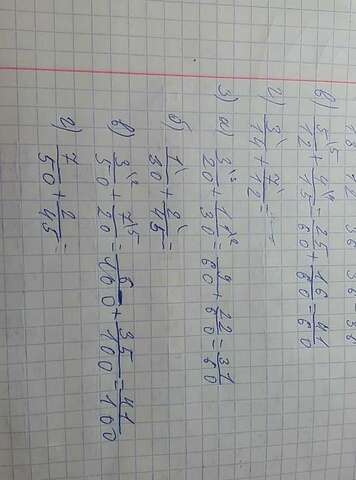 в) 5/12\5 + 4/15\4 = 25/60 + 16/60 = 41/60
г) 3\/14 + 7\/12 =
3) а) 3/20\3 + 1/30\2 = 9/60 + 22/60 = 31/60
б) 1\/30 + 2\/45 =
в) 3/50\2 + 7/20\5 = 6/100 + 35/100 = 41/100
г) 7/50 + 2/45 =